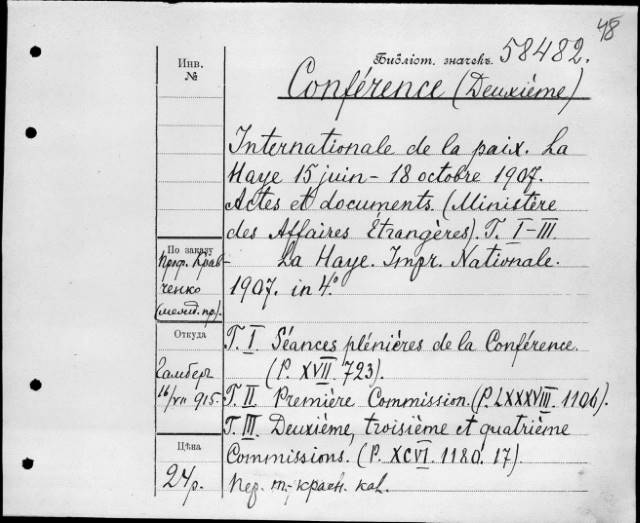 48
Библіот. значекъ 58482.
Conférence (Deuxième)
Internationale de la paix. La
Haye 15 juin – 18 octobre 1907.
Actes et documents. (Ministère
des Affaires Étrangères). T. I–III
La Haye. Impr. Nationale.
1907. in 4°.
T. I. Séances plénières de la Conférence.
(P. XVII. 723).
T. II. Première Commission. (P. LXXXVIII. 1106).
T. III. Deuxième, troisième et quatrième
Commissions. (P. XCVI. 1180. 17).
Пер. т.-красн. кал.
Инв.
№
По заказу
Проф. Крав-
ченко
(межд. пр).
Откуда
Гамберг
16/VII 915.
Цѣна
24р.